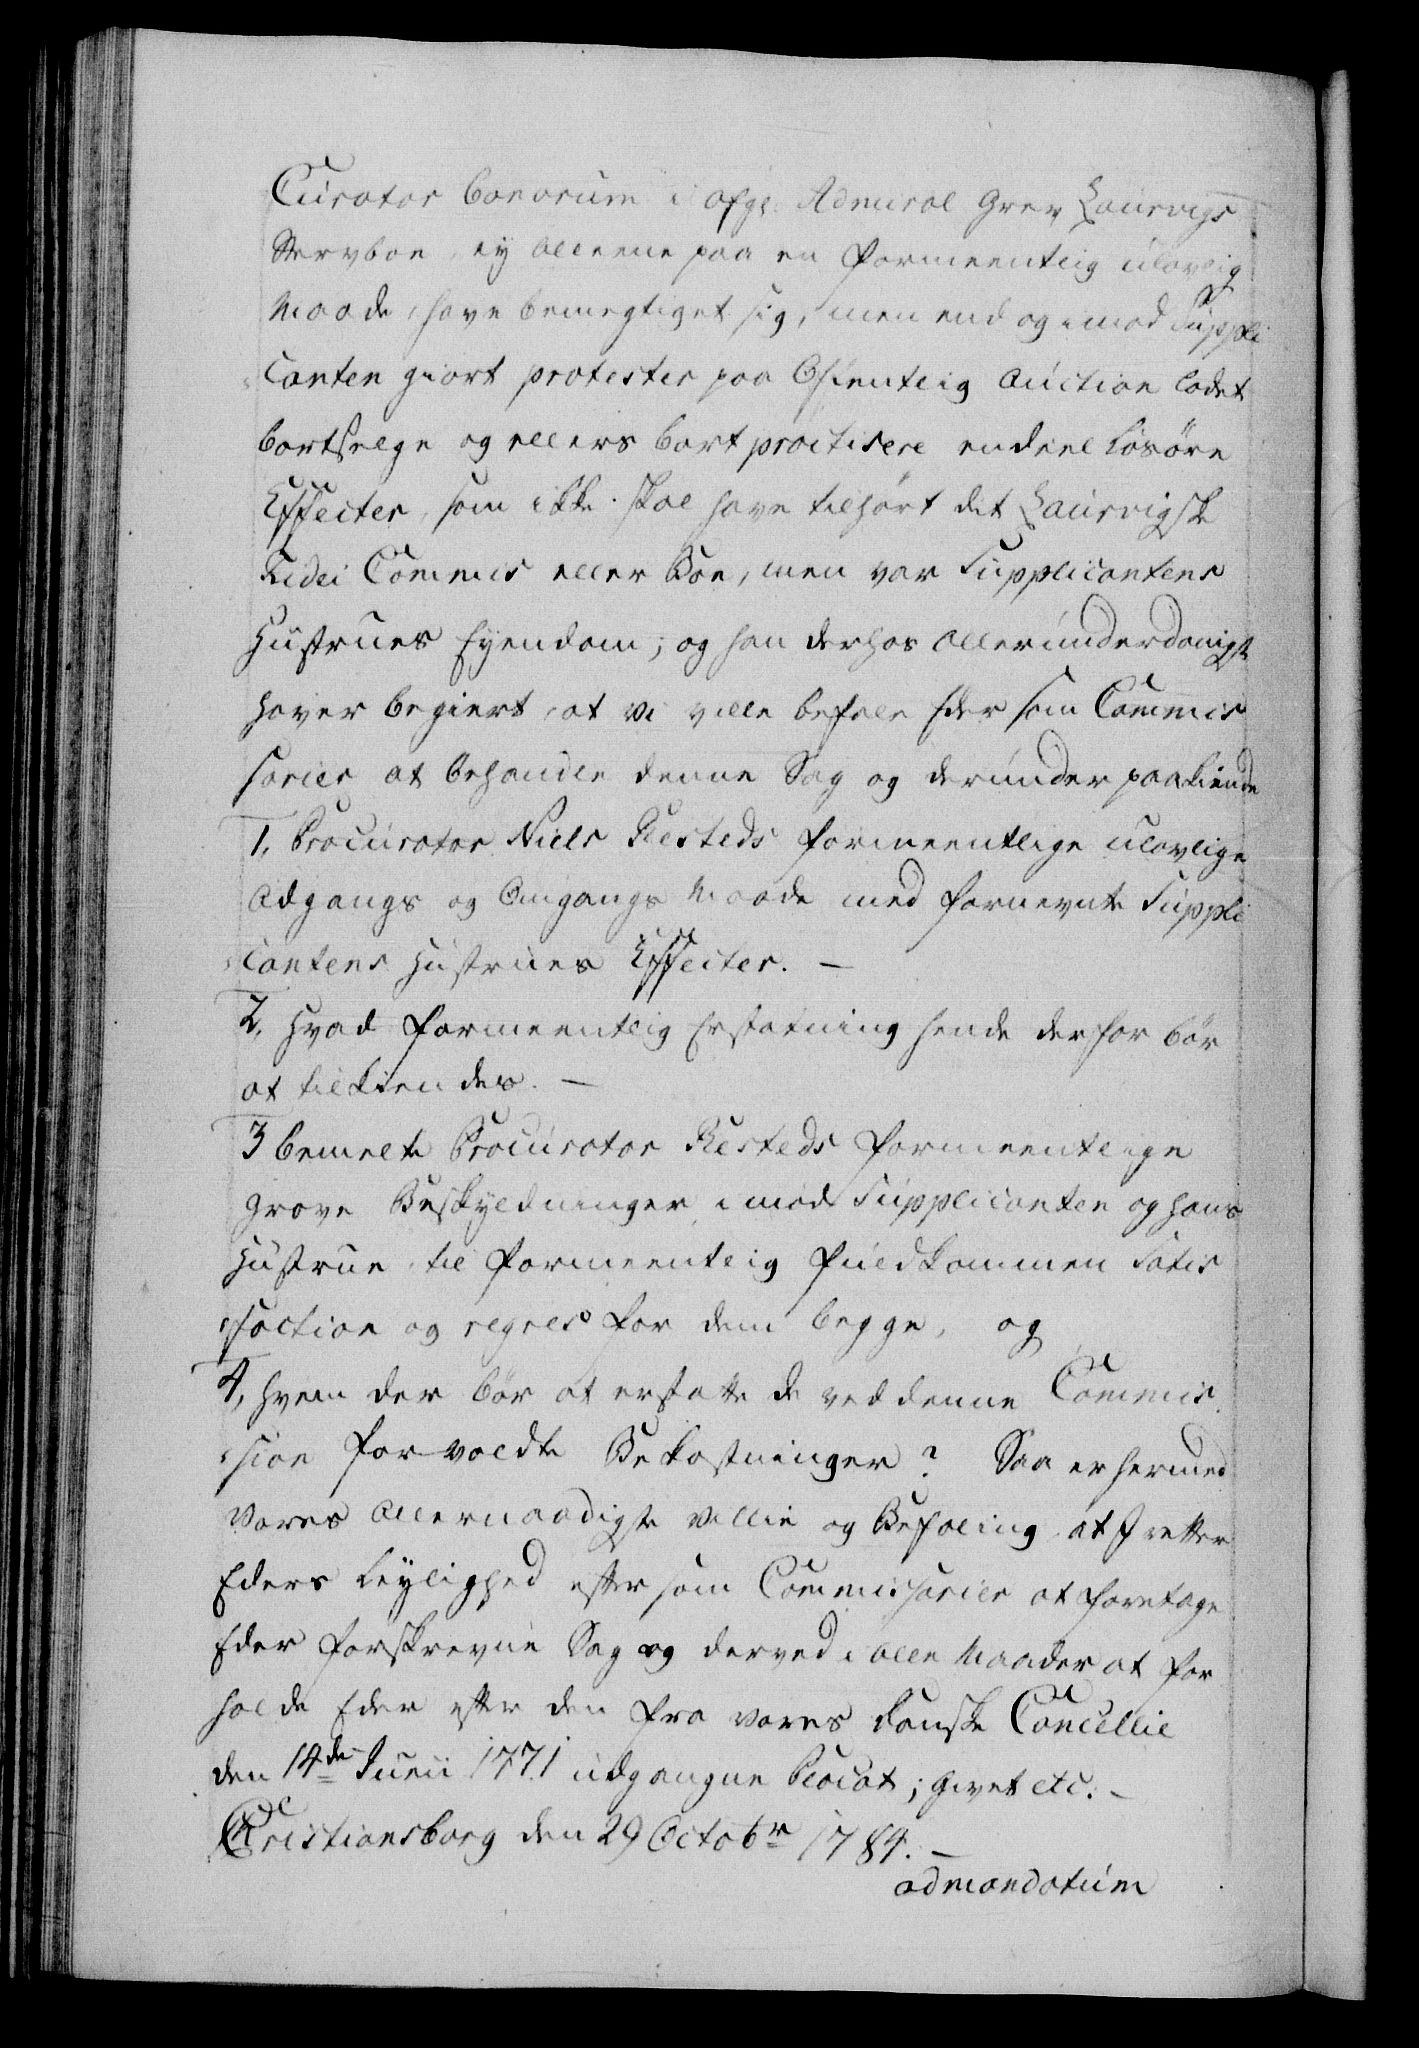 Curator bonorum i afg: Admiral Grev Laurvigs
Stervboe, ey alleene paa en formeentlig ulovlig
Maade have bemegtiget sig, men end og imod Suppli
canten giort protester paa Offentlig Auction ladet
bortselge og ellers bort practisere endeel Løsøre
Effecter, som ikke skal have tilhørt det Laurvigske
Fidei Commis eller Boe, men var Supplicantens
Hustrues Eyendom; og han derhos allerunderdanigst
haver begiert, at vi ville befale Eder som Commis
sarier at behandle denne Sag og derunder paakiende
1, Procurator Niels Resteds formeentlige ulovlige
Adgangs og Omgangs Maade med fornevnte Suppli
cantens Hustrues Effecter. —
2, Hvad formeentlig Erstatning hende derfor bør
at tilkiendes. —
3 bemelte Procurator Resteds formeentlige
grove Beskyldninger imod Supplicanten og hans
Hustrue til formeentlig fuldkommen Satis
faction og regres for dem begge, og
4, hvem der bør at erstatte de ved denne Commis
sion forvoldte Bekostninger? Saa er hermed
Vores allernaadigste Villie og Befaling at I retter
Eders Leylighed efter som Commissarier at foretage
Eder forskrevne Sag og derved i alle Maader at for
holde Eder efter den fra vores danske Cancellie
den 14de Junii 1771 udgangne Placat; Givet etc. —
Christiansborg den 29 Octobr 1784. —
admandatum